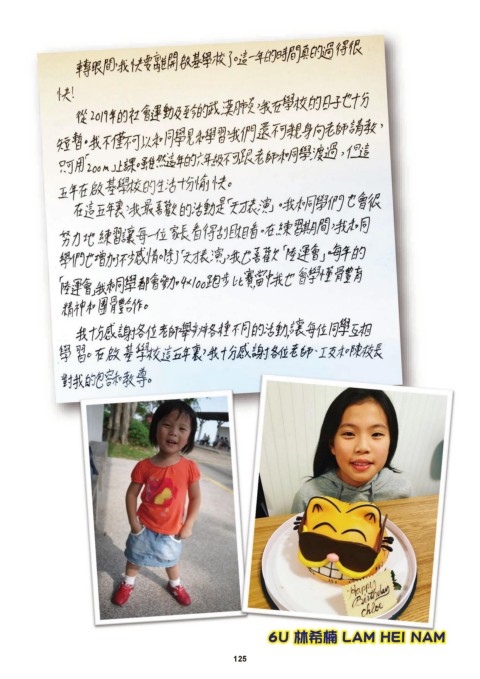 轉眼間，我快要離開啟基學校了。這一年的時間真的過得很
快！
從2019年的社會運動及至今的武漢肺炎，我在學校的日子也十分
短暫。我不僅不可以和同學見和學習，我們還不可親身向老師請教，
只可用「zoom」上課。雖然這年的六年級不可跟老師和同學渡過，但這
五年在啟基學校的生活十分愉快。
在這五年裏，我最喜歡的活動是「天才表演」。我和同學們也會很
努力地練習讓每一位家長看得目瞪口呆。在練習期間，我和同
學們也增加了不少感情。除了「天才表演」，我也喜歡「陸運會」。每年的
「陸運會」我和同學都會參加4×100跑步比賽，當中我也會學懂體育
精神和團體合作。
我十分感謝各位老師舉辦各種不同的活動，讓每位同學互相
學習。在啟基學校這五年裏，我十分感謝各位老師、工友和陳校長
對我的包容和教導。
Happy
Birthday
Chloe
6U 林希楠 LAM HEI NAM
125